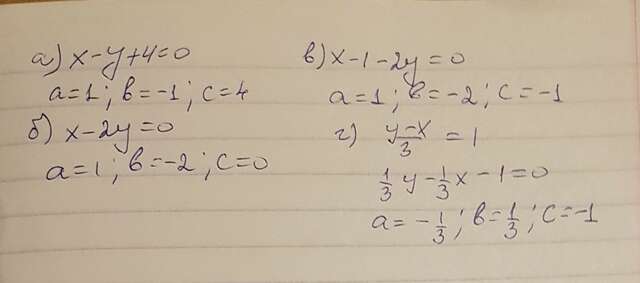 а) x-y+4=0
a=1; в=-1; c=4
б) x-2y=0
a=1; в=-2; c=0
в) x-1-2y=0
a=1; в=-2; c=-1
г) \frac{y-x}{3} = 1
\frac{1}{3}y-\frac{1}{3}x-1=0
a=-\frac{1}{3}; в=\frac{1}{3}; c=-1